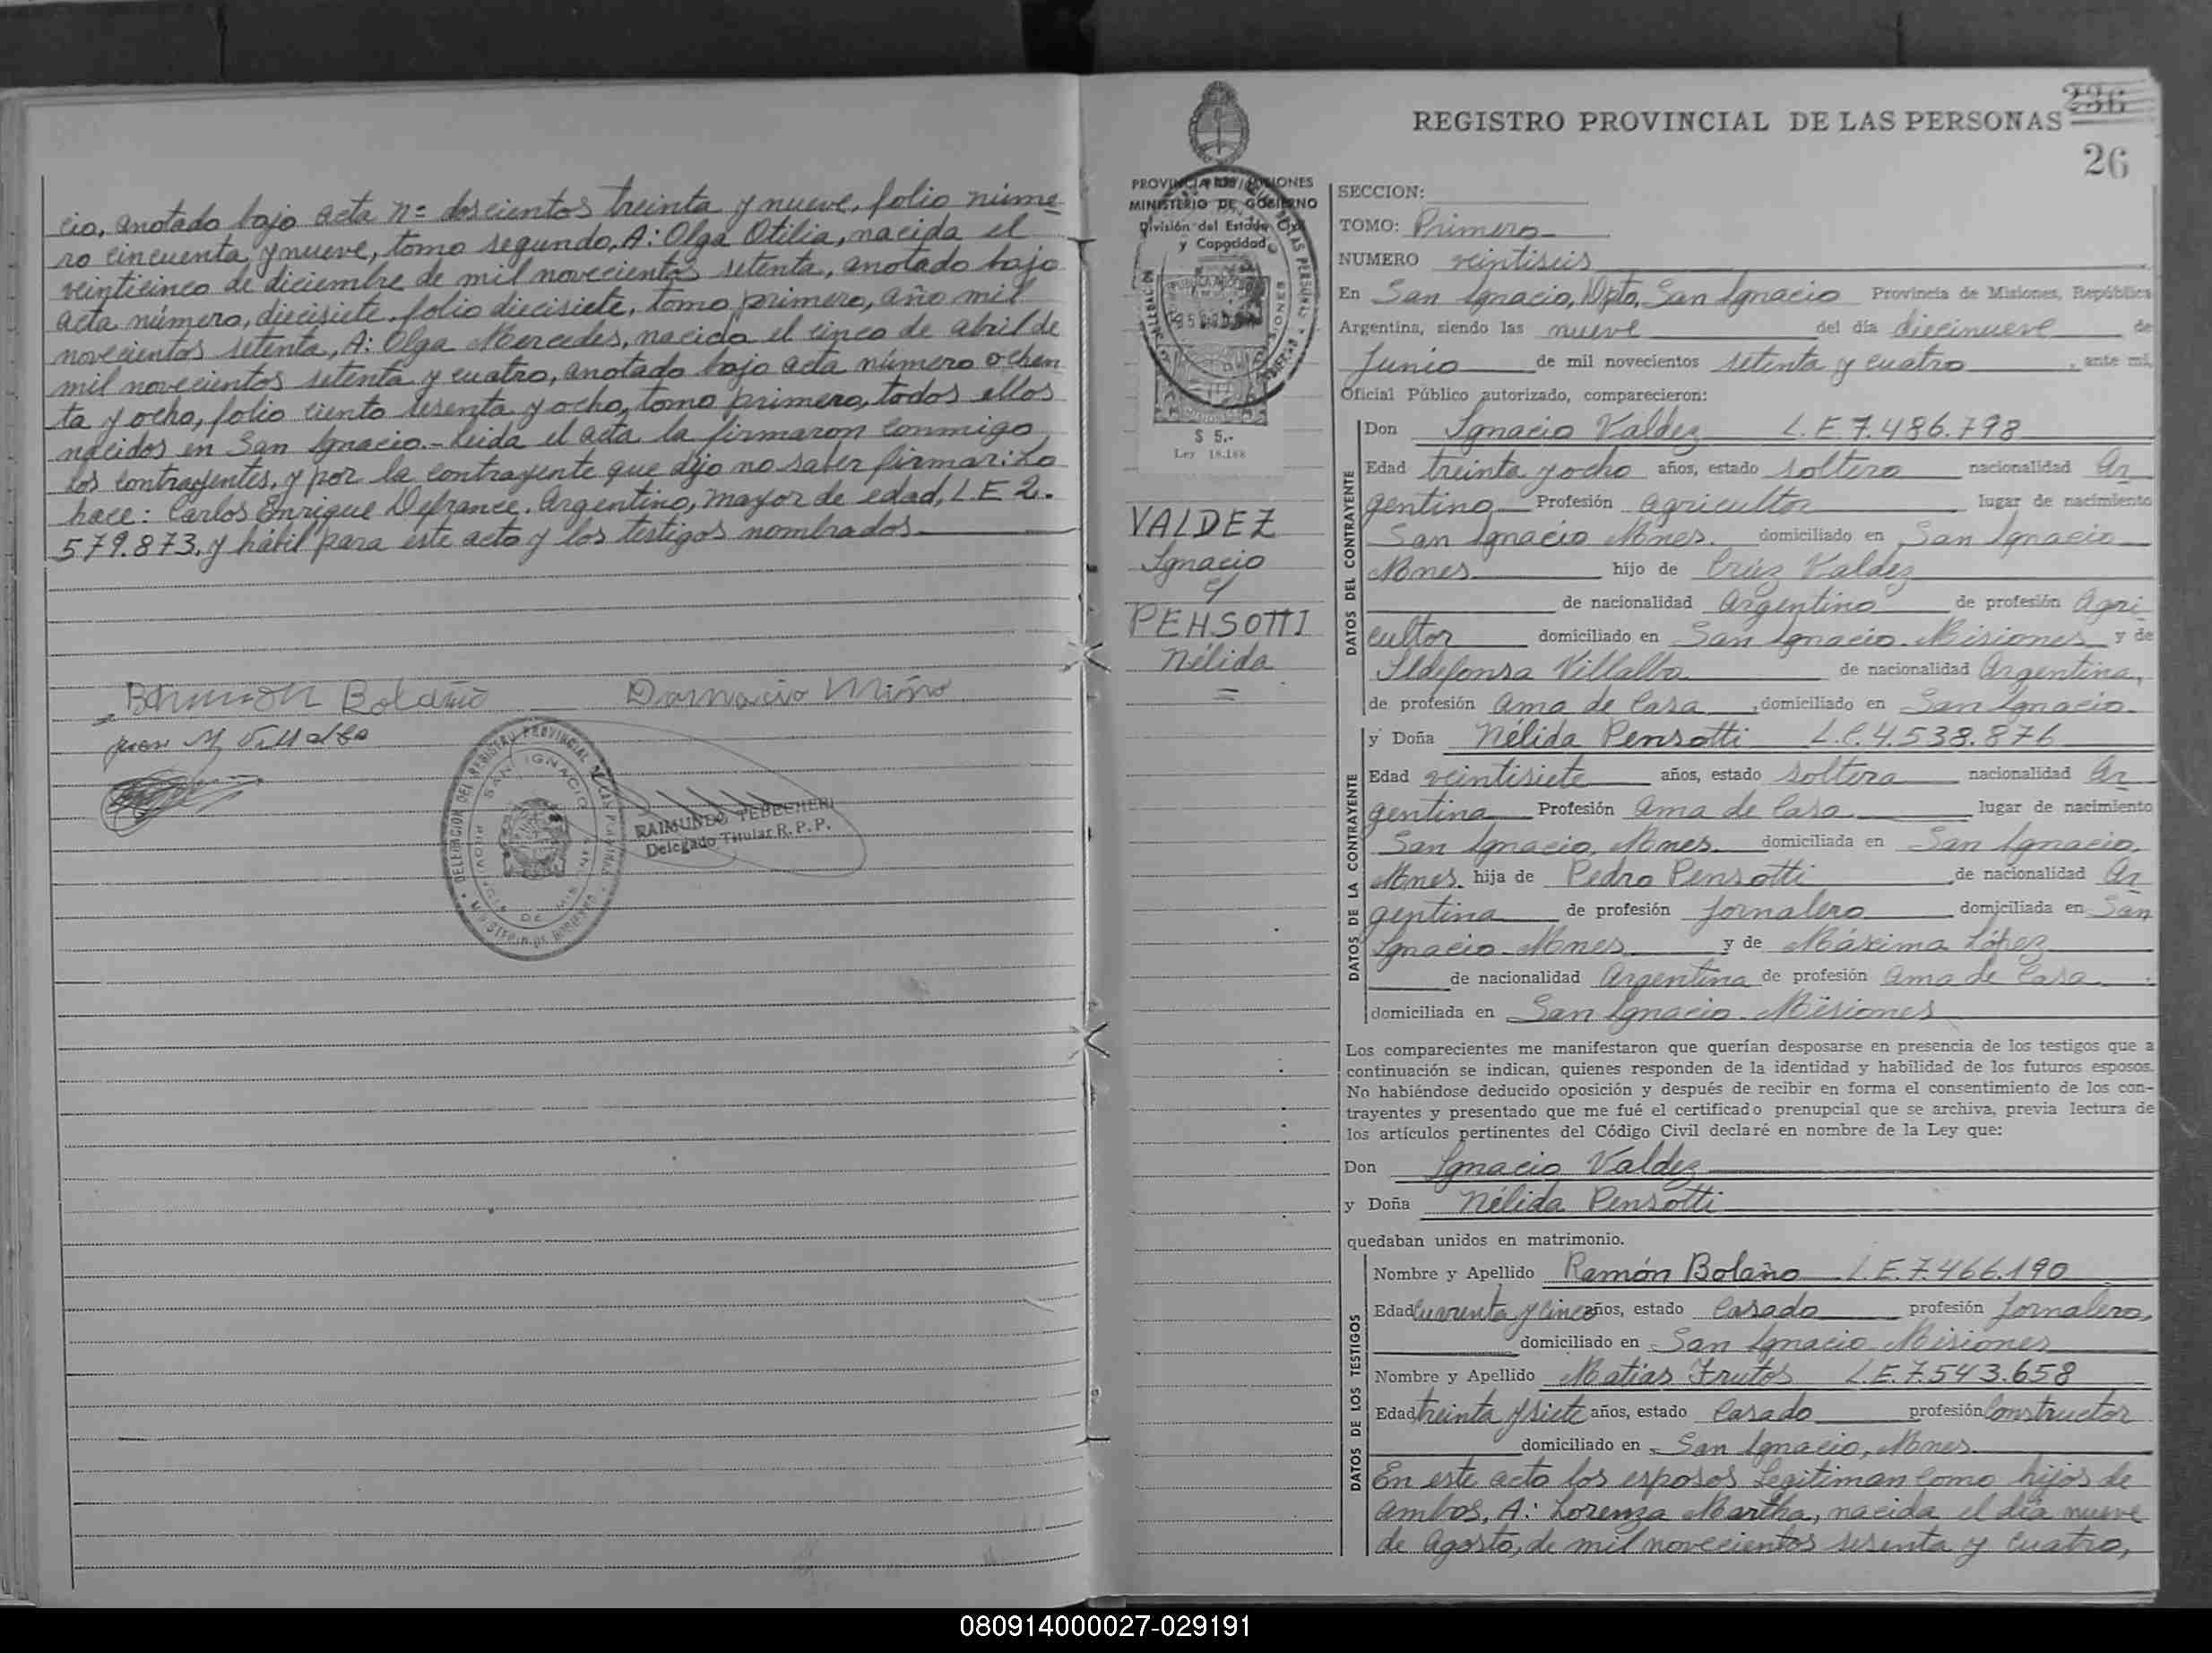 cio, anotado bajo acta nº doscientos treinta y nueve, folio núme
ro cincuenta y nueve, tomo segundo, A: Olga Otilia, nacida el
veinticinco de diciembre de mil novecientos setenta, anotado bajo
acta número, diecisiete, folio diecisiete, tomo primero, año mil
novecientos setenta, A: Olga Mercedes, nacida el cinco de abril de
mil novecientos setenta y cuatro, anotado bajo acta número ochen
ta y ocho, folio ciento sesenta y ocho, tomo primero, todos ellos
nacidos en San Ignacio.- Leida el acta la firmaron conmigo
los contrayentes, y por la contrayente que dijo no saber firmar: Lo
hace: Carlos Enrique Defrance, Argentino, mayor de edad, L E 2.
579.873, y hábil para este acto y los testigos nombrados.
Bolaño Damacio Miño
Juan M Villalba
DELEGACION DEL REGISTRO PROVINCIAL DE LAS PERSONAS
SAN IGNACIO
PROVINCIA DE MISIONES
MINISTERIO DE GOBIERNO
RAIMUNDO TEBECHERI
Delegado Titular R. P. P.
236
REGISTRO PROVINCIAL DE LAS PERSONAS
26
PROVINCIA DE MISIONES
MINISTERIO DE GOBIERNO
División del Estado Civil
y Capacidad
$ 5.-
Ley 18.188
VALDEZ
Ignacio
c/
PEHSOTTI
Nélida
=
SECCION:
TOMO: Primero
NUMERO veintiseis
En San Ignacio, Dpto, San Ignacio Provincia de Misiones, República
Argentina, siendo las nueve del día diecinueve de
Junio de mil novecientos setenta y cuatro, ante mí,
Oficial Público autorizado, comparecieron:
DATOS DEL CONTRAYENTE
Don Ignacio Valdez L.E.7.486.798
Edad treinta y ocho años, estado soltero nacionalidad Ar
gentino Profesión agricultor lugar de nacimiento
San Ignacio Mnes. domiciliado en San Ignacio
Mnes hijo de Crúz Valdez
de nacionalidad Argentino de profesión Agri
cultor domiciliado en San Ignacio. Misiones y de
Ildefonsa Villalba de nacionalidad Argentina,
de profesión Ama de Casa, domiciliado en San Ignacio.
DATOS DE LA CONTRAYENTE
y Doña Nélida Pensotti L.C.4.538.876
Edad veintisiete años, estado soltera nacionalidad Ar
gentina Profesión Ama de Casa lugar de nacimiento
San Ignacio, Mnes. domiciliada en San Ignacio,
Mnes. hija de Pedro Pensotti, de nacionalidad Ar
gentina de profesión Jornalero domiciliada en San
Ignacio-Mnes y de Máxima López
de nacionalidad Argentina de profesión Ama de Casa.
domiciliada en San Ignacio - Misiones
Los comparecientes me manifestaron que querían desposarse en presencia de los testigos que a
continuación se indican, quienes responden de la identidad y habilidad de los futuros esposos.
No habiéndose deducido oposición y después de recibir en forma el consentimiento de los con-
trayentes y presentado que me fué el certificado prenupcial que se archiva, previa lectura de
los artículos pertinentes del Código Civil declaré en nombre de la Ley que:
Don Ignacio Valdez
y Doña Nélida Pensotti
quedaban unidos en matrimonio.
DATOS DE LOS TESTIGOS
Nombre y Apellido Ramón Bolaño L.E.7.466.190
Edad Cuarenta y cinco años, estado Casado profesión Jornalero,
domiciliado en San Ignacio Misiones
Nombre y Apellido Matías Frutos L.E.7.543.658
Edad treinta y siete años, estado Casado profesión Constructor
domiciliado en San Ignacio, Mnes.
En este acto los esposos Legitiman como hijos de
ambos, A: Lorenza Martha, nacida el día nueve
de Agosto, de mil novecientos sesenta y cuatro,
080914000027-029191